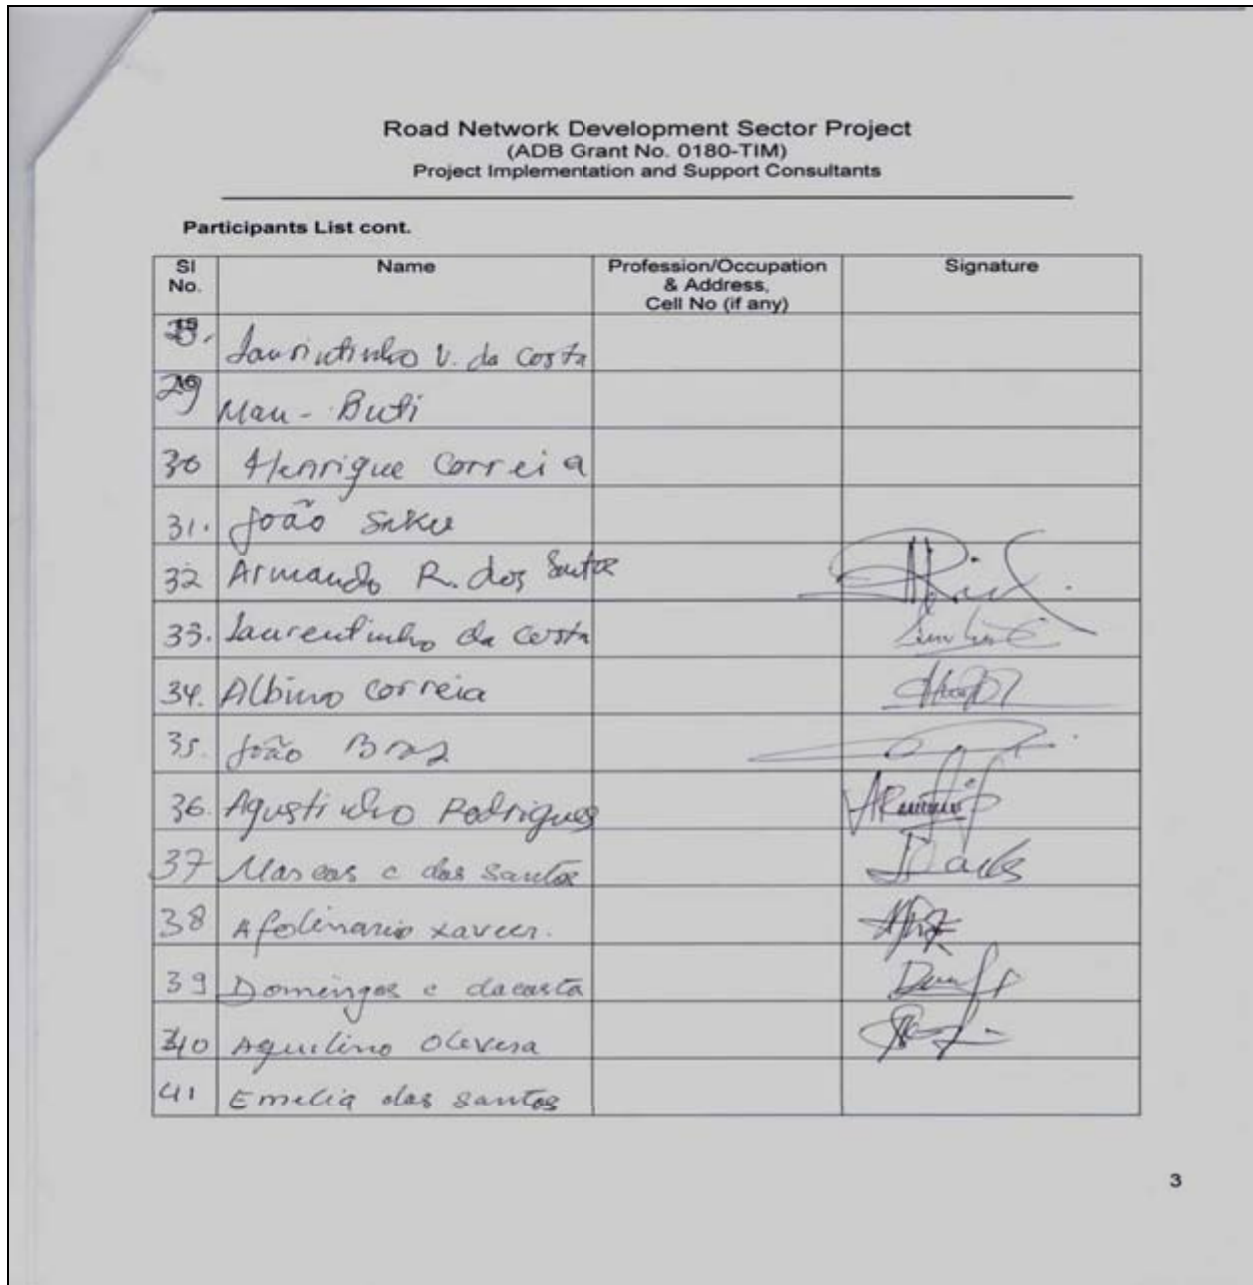 Road Network Development Sector Project
(ADB Grant No. 0180-TIM)
Project Implementation and Support Consultants
Participants List cont.
Sl No. Name Profession/Occupation & Address, Cell No (if any) Signature
V. da Costa
29 Mau - Buti
30 Henrique Correia
31. João Saku
32 Armando R. dos Santos
33. Laurentinho da Costa
34. Albino Correia
35. João Braz
36. Agustinho Rodrigues
37 Marcas c dos Santos
38 Afolinario xavier.
39 Domingos c dacosta
40 Aquilino Olevera
41 Emelia dos santos
3